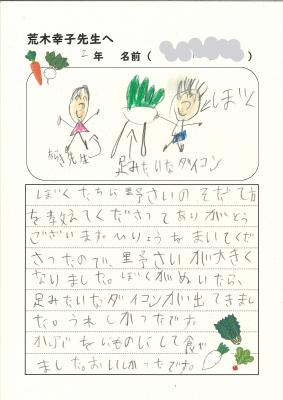 荒木幸子先生へ
二年 名前( )
←ぼく
あらき先生
足みたいなダイコン
ぼくたちに野さいのそだて方
を教えてくださってありがとう
ございます。ひりょうをまいてくだ
さったので、野さいが大きく
なりました。ぼくがぬいたら、
足みたいなダイコンが出てきまし
た。うれしかったです。
かぶをにものにして食べ
ました。おいしかったです。